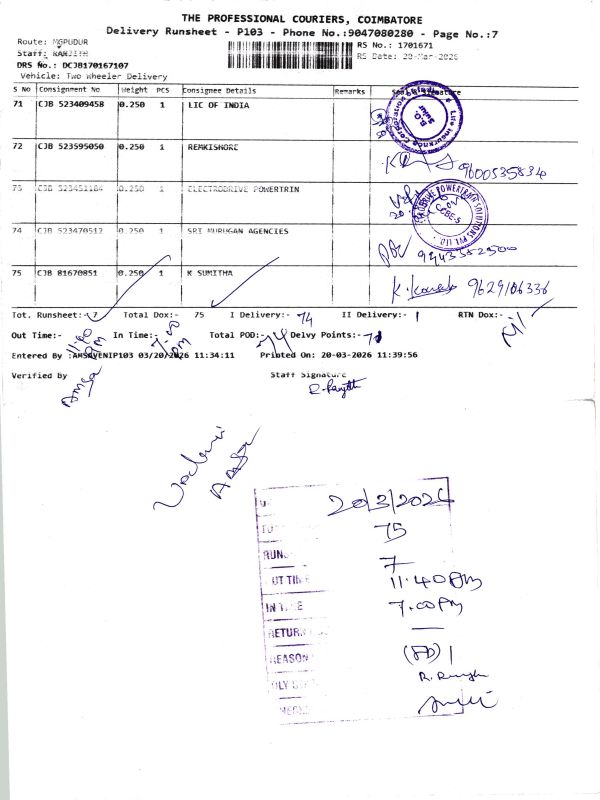 THE PROFESSIONAL COURIERS, COIMBATORE
Delivery Runsheet - P103 - Phone No.:9047080280 - Page No.:7
Route: MGPUDUR
Staff: RANJITH
DRS No.: DCJB170167107
Vehicle: Two Wheeler Delivery
RS No.: 1701671
RS Date: 20-Mar-2026
S No Consignment No Weight PCS Consignee Details Remarks Signature
71 CJB 523409458 0.250 1 LIC OF INDIA
72 CJB 523595050 0.250 1 REMKISHORE
9600535834
73 CJB 523451184 0.250 1 ELECTRODRIVE POWERTRIN
74 CJB 523470512 0.250 1 SRI MURUGAN AGENCIES
75 CJB 81670851 0.250 1 K SUMITHA
9629106336
Tot. Runsheet:- 7 Total Dox:- 75 I Delivery:- 74 II Delivery:- 1 RTN Dox:- Nil
Out Time:- 11:40 AM In Time:- 7.00 PM Total POD:- 74 Delvy Points:-
Entered By :AMSAVENIP103 03/20/2026 11:34:11 Printed On: 20-03-2026 11:39:56
Verified By Staff Signature
Amsa
20/3/2026
75
RUN 7
OUT TIME 11.40 AM
IN TIME 7.00 PM
RETURN —
REASON 1